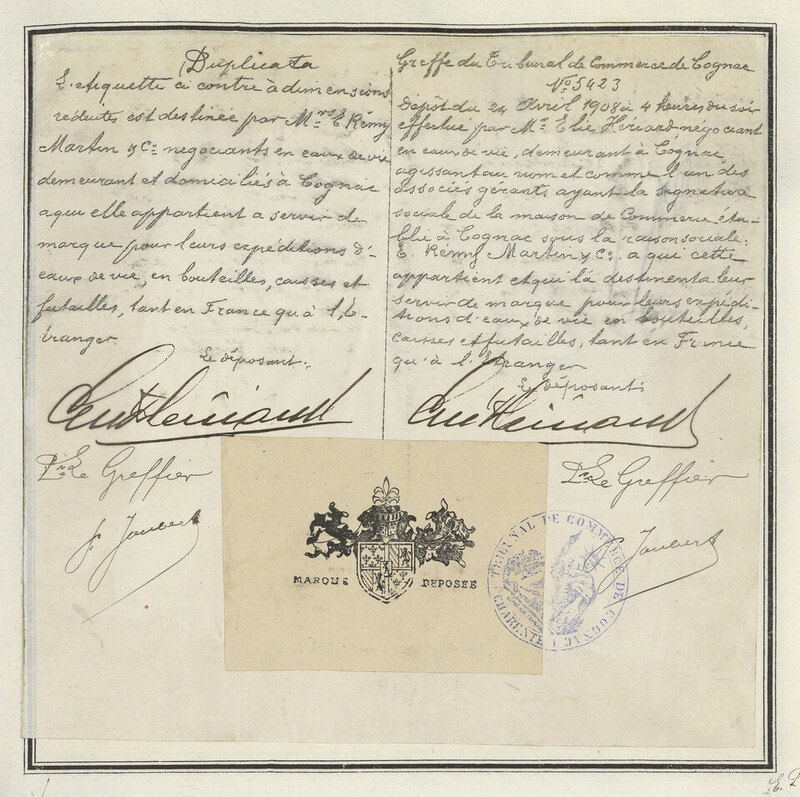 Duplicata
L'etiquette ci contre à dimensions
réduites est destinée par Mrs E. Rémy
Martin & Co negociants en eaux de vie
demeurant et domiciliés à Cognac
a qui elle appartient a servir de
marque pour leurs expéditions d'-
eaux de vie, en bouteilles, caisses et
futailles, tant en France qu'à l'é-
tranger.
Le déposant.
Pr Le Greffier
J. Joubert
Greffe du Tribunal de Commerce de Cognac
No 5423
Dépôt du 24 Avril 1908 à 4 heures du soir
effectué par Mr Elie Hériard négociant
en eaux de vie, demeurant à Cognac,
agissant au nom et comme l'un des
associés gérants ayant la signature
sociale de la maison de Commerce éta-
blie à Cognac sous la raison sociale:
E. Rémy Martin & Co. a qui cette
appartient et qui la destinent a leur
servir de marque pour leurs expédi-
tions d'eaux de vie en bouteilles,
caisses et futailles, tant en France
qu'à l'étranger
Le déposant
Pr Le Greffier
J. Joubert
MARQUE DEPOSEE
TRIBUNAL DE COMMERCE DE COGNAC
CHARENTE